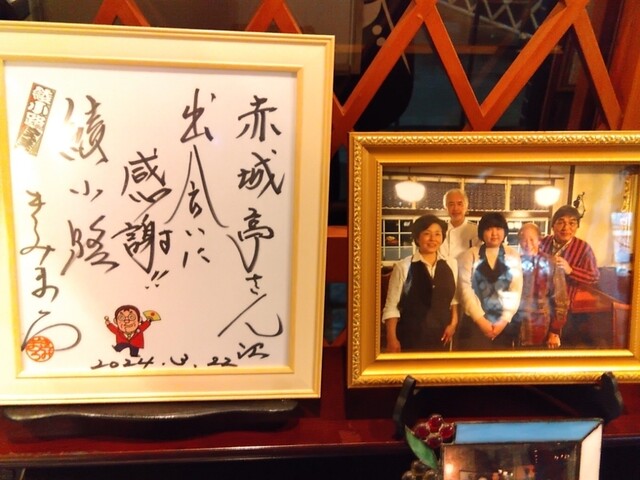 赤城亭さん江
出会いに
感謝!!
綾小路
きみまろ
2024.3.22
綾小路